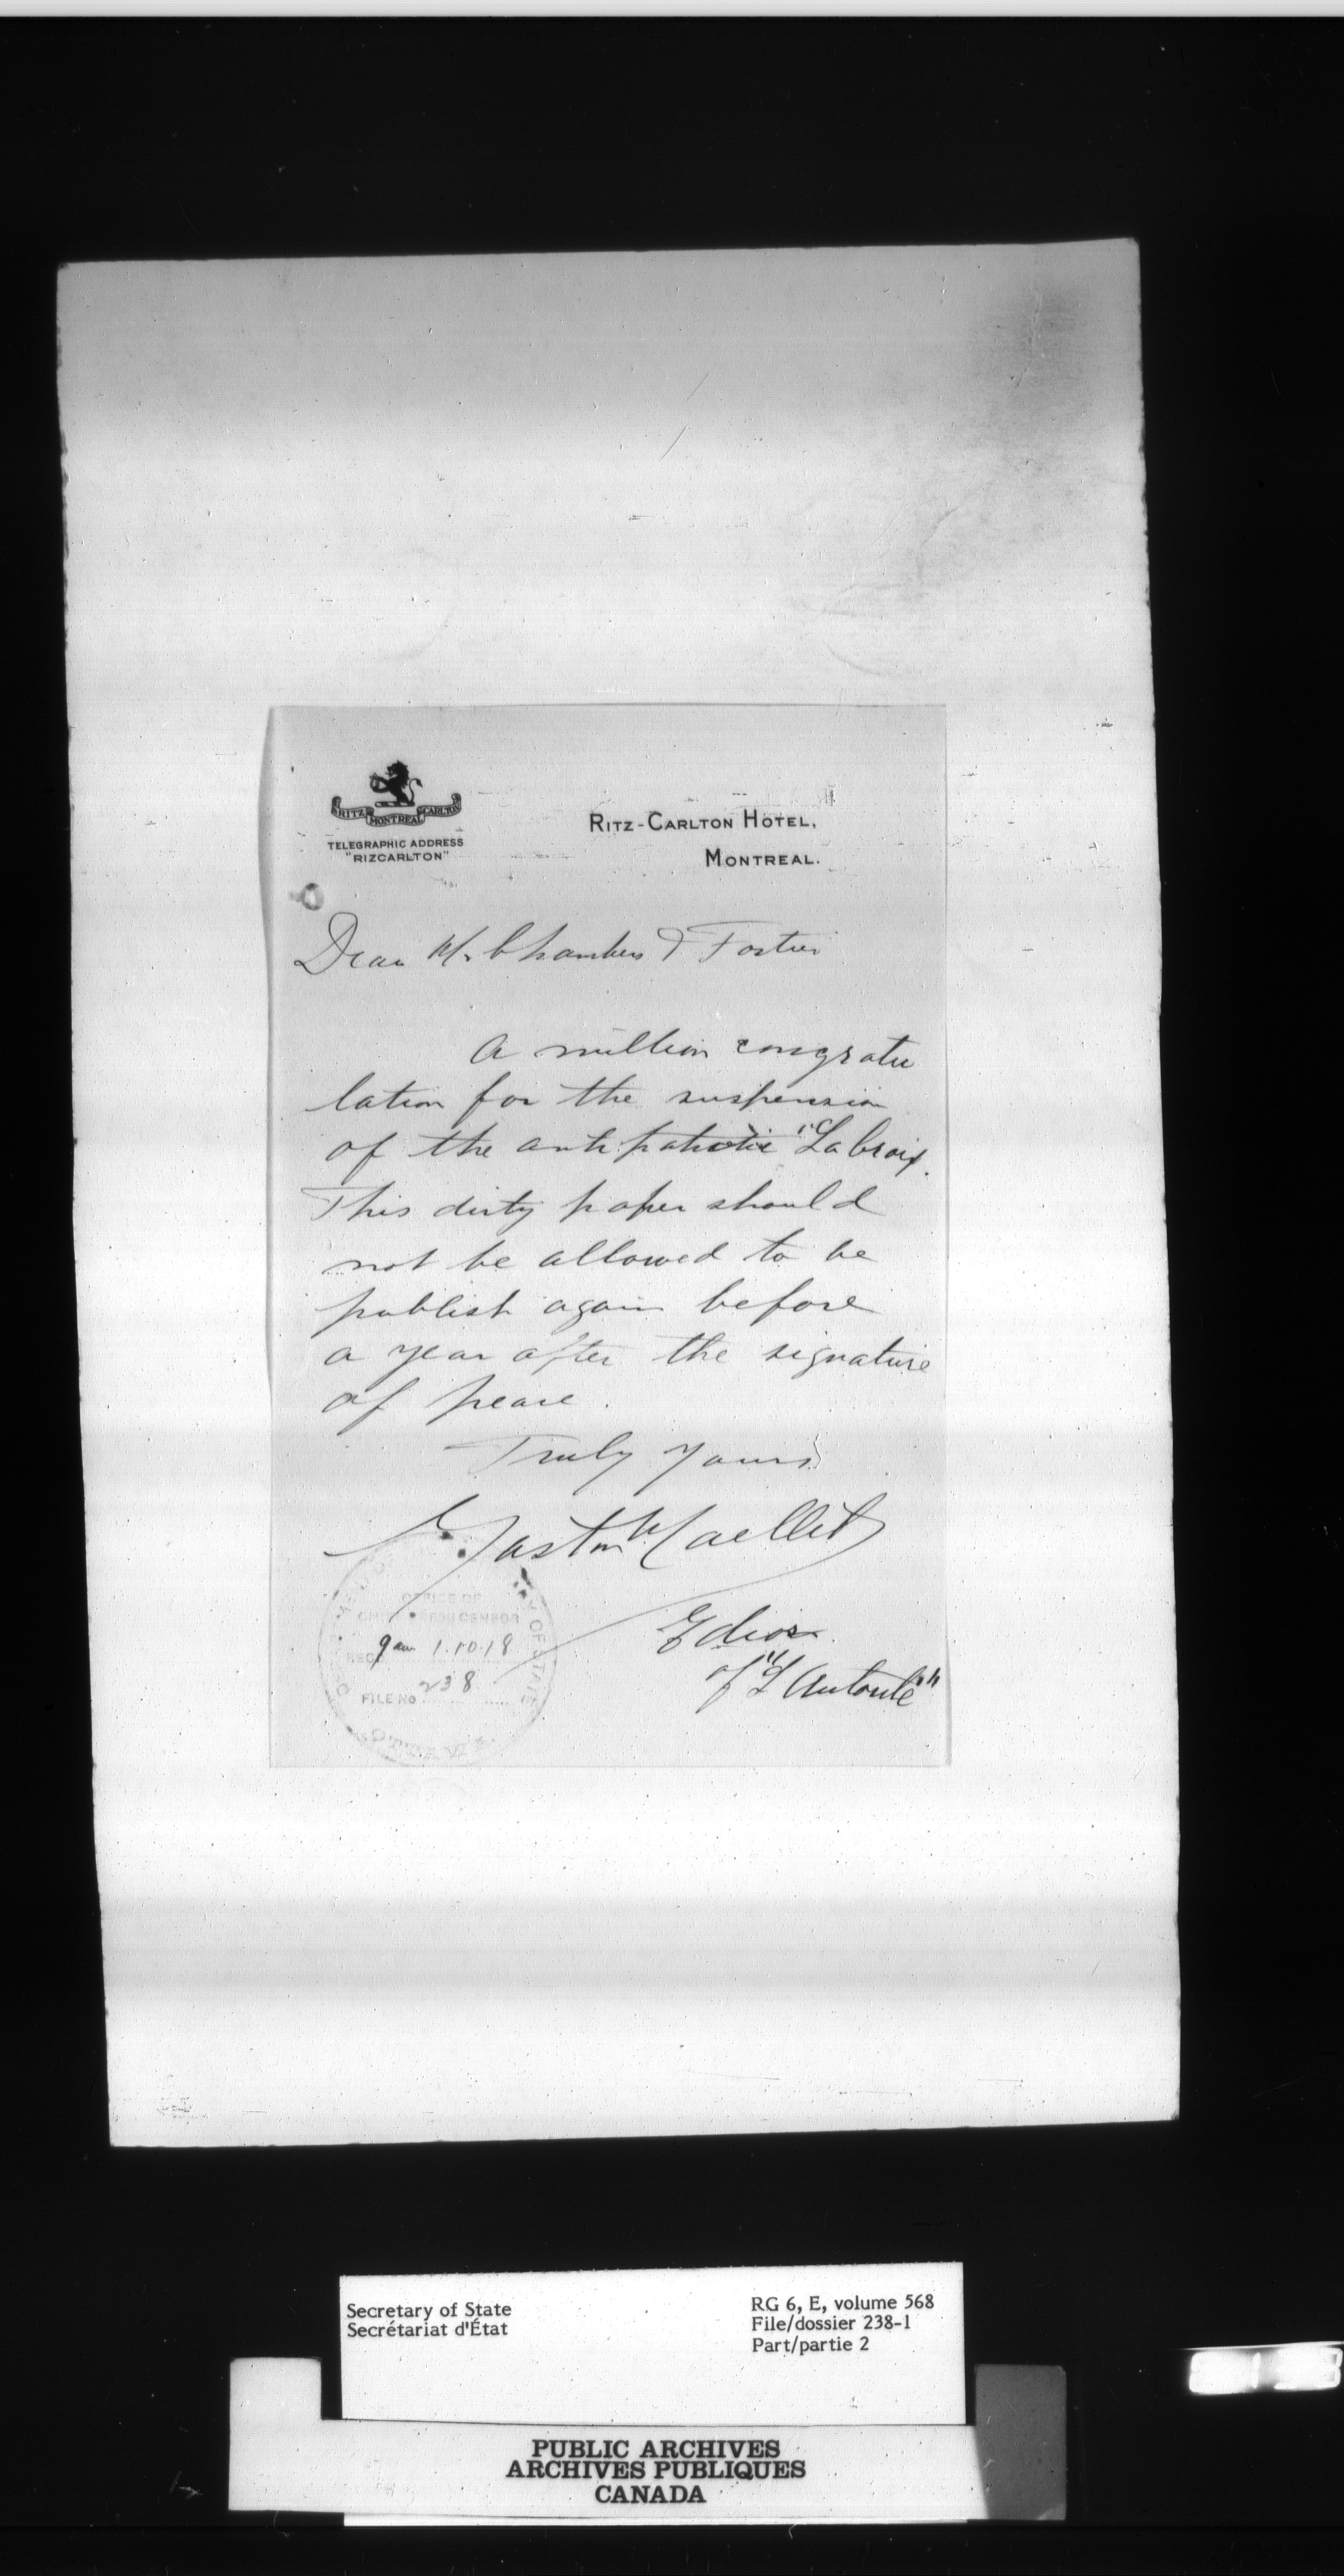 RITZ MONTREAL CARLTON
TELEGRAPHIC ADDRESS
"RIZCARLTON"
RITZ-CARLTON HOTEL,
MONTREAL.
Dear Mr Chambers & Fortier
A million congratu
lation for the suspension
of the antipatriotic "La Croix.
This dirty paper should
not be allowed to be
publish again before
a year after the signature
of peace.
Truly Yours
Gaston Maillet
Editor
of "L'Autorité"
OFFICE OF
PRESS CENSOR
9 am 1.10.18
238
FILE No
OTTAWA
Secretary of State
Secrétariat d'État
RG 6, E, volume 568
File/dossier 238-1
Part/partie 2
PUBLIC ARCHIVES
ARCHIVES PUBLIQUES
CANADA